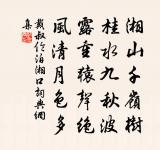 湘山千嶺樹
桂水九秋波
露重猿聲絕
風清月色多
戴叔伦泊湘口詞典網
集